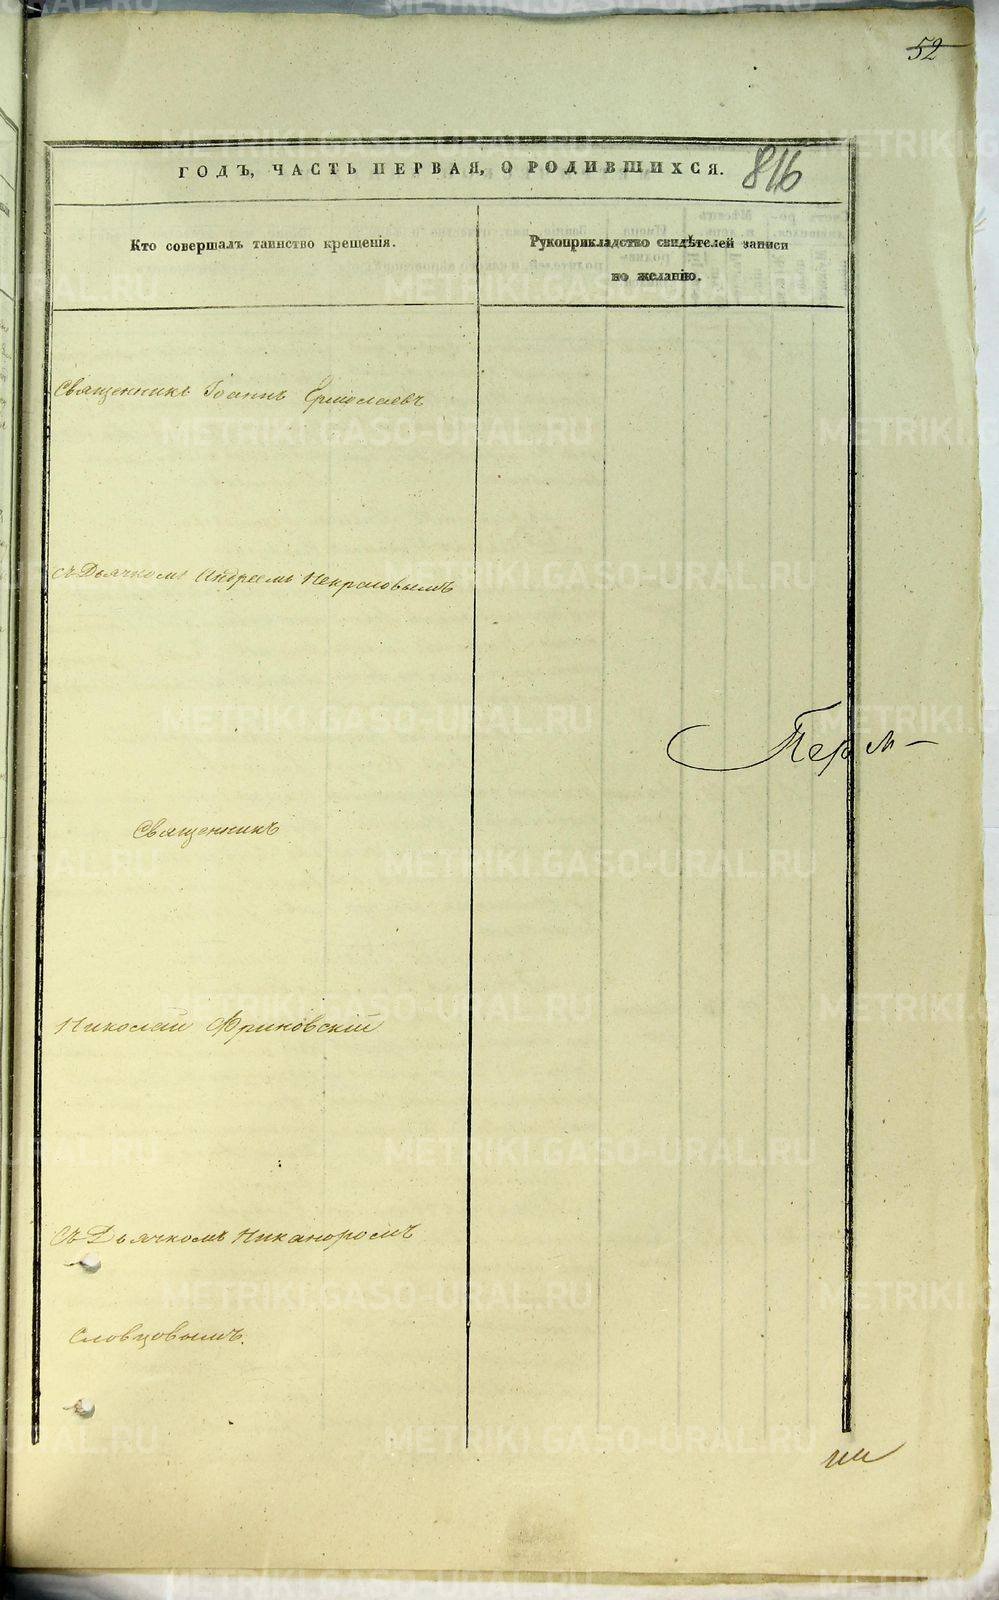 52
ГОДЪ, ЧАСТЬ ПЕРВАЯ, О РОДИВШИХСЯ.
816
Кто совершалъ таинство крещенія.
Рукоприкладство свидѣтелей записи
по желанію.
Священникъ Іоаннъ Ермолаевъ
съ Дьячкомъ Андреемъ Некрасовымъ
Перм-
Священникъ
Николай Фриновскій
Съ Дьячкомъ Никаноромъ
Словцовымъ.
METRIKI.GASO-URAL.RU